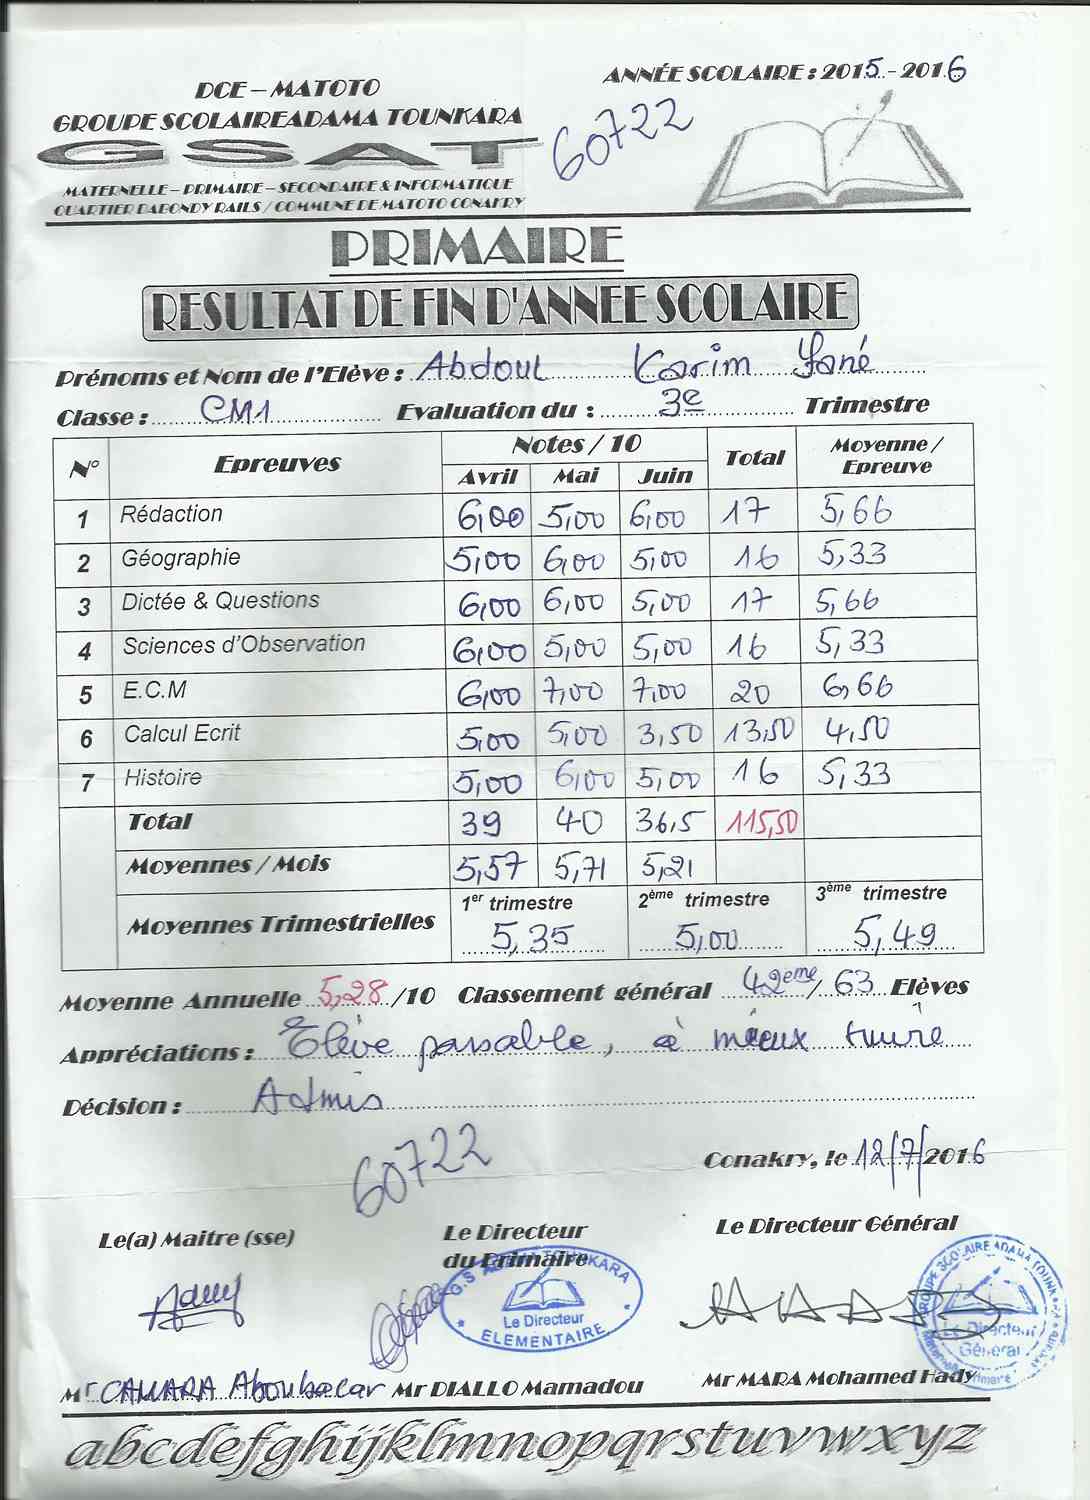 DCE – MATOTO
ANNÉE SCOLAIRE : 2015 - 2016
GROUPE SCOLAIREADAMA TOUNKARA
60722
GSAT
MATERNELLE – PRIMAIRE – SECONDAIRE & INFORMATIQUE
QUARTIER DABONDY RAILS / COMMUNE DE MATOTO CONAKRY
PRIMAIRE
RESULTAT DE FIN D'ANNEE SCOLAIRE
Prénoms et Nom de l'Elève : Abdoul Karim Fané
Classe : CM1 Evaluation du : 3e Trimestre
N° Epreuves Notes / 10 Total Moyenne / Epreuve
Avril Mai Juin
1 Rédaction 6,00 5,00 6,00 17 5,66
2 Géographie 5,00 6,00 5,00 16 5,33
3 Dictée & Questions 6,00 6,00 5,00 17 5,66
4 Sciences d'Observation 6,00 5,00 5,00 16 5,33
5 E.C.M 6,00 7,00 7,00 20 6,66
6 Calcul Ecrit 5,00 5,00 3,50 13,50 4,50
7 Histoire 5,00 6,00 5,00 16 5,33
Total 39 40 36,5 115,50
Moyennes / Mois 5,57 5,71 5,21
Moyennes Trimestrielles 1er trimestre 2ème trimestre 3ème trimestre
5,35 5,00 5,49
Moyenne Annuelle 5,28 /10 Classement général 42ème / 63 Elèves
Appréciations : Elève passable, à mieux suivre
Décision : Admis
60722
Conakry, le 12/7/2016
Le(a) Maitre (sse)
Le Directeur du Primaire
Le Directeur Général
G.S ADAMA TOUNKARA
Le Directeur
ELEMENTAIRE
GROUPE SCOLAIRE ADAMA TOUNKARA
Le Directeur
Général
Mr CAMARA Aboubacar Mr DIALLO Mamadou Mr MARA Mohamed Hady
abcdefghijklmnopqrstuvwxyz